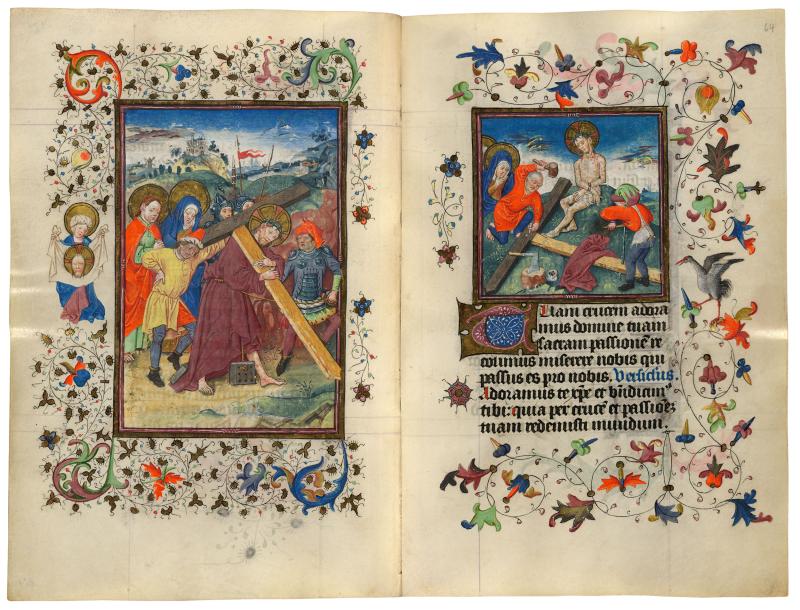 64
Tuam crucem adora
mus domine tuam
sacram passionē re
colimus miserere nobis qui
passus es pro nobis. Versiclus.
Adoramus te xp̄e et bn̄dicim᷒
tibi: quia per crucē et passionē
tuam redemisti mundum.